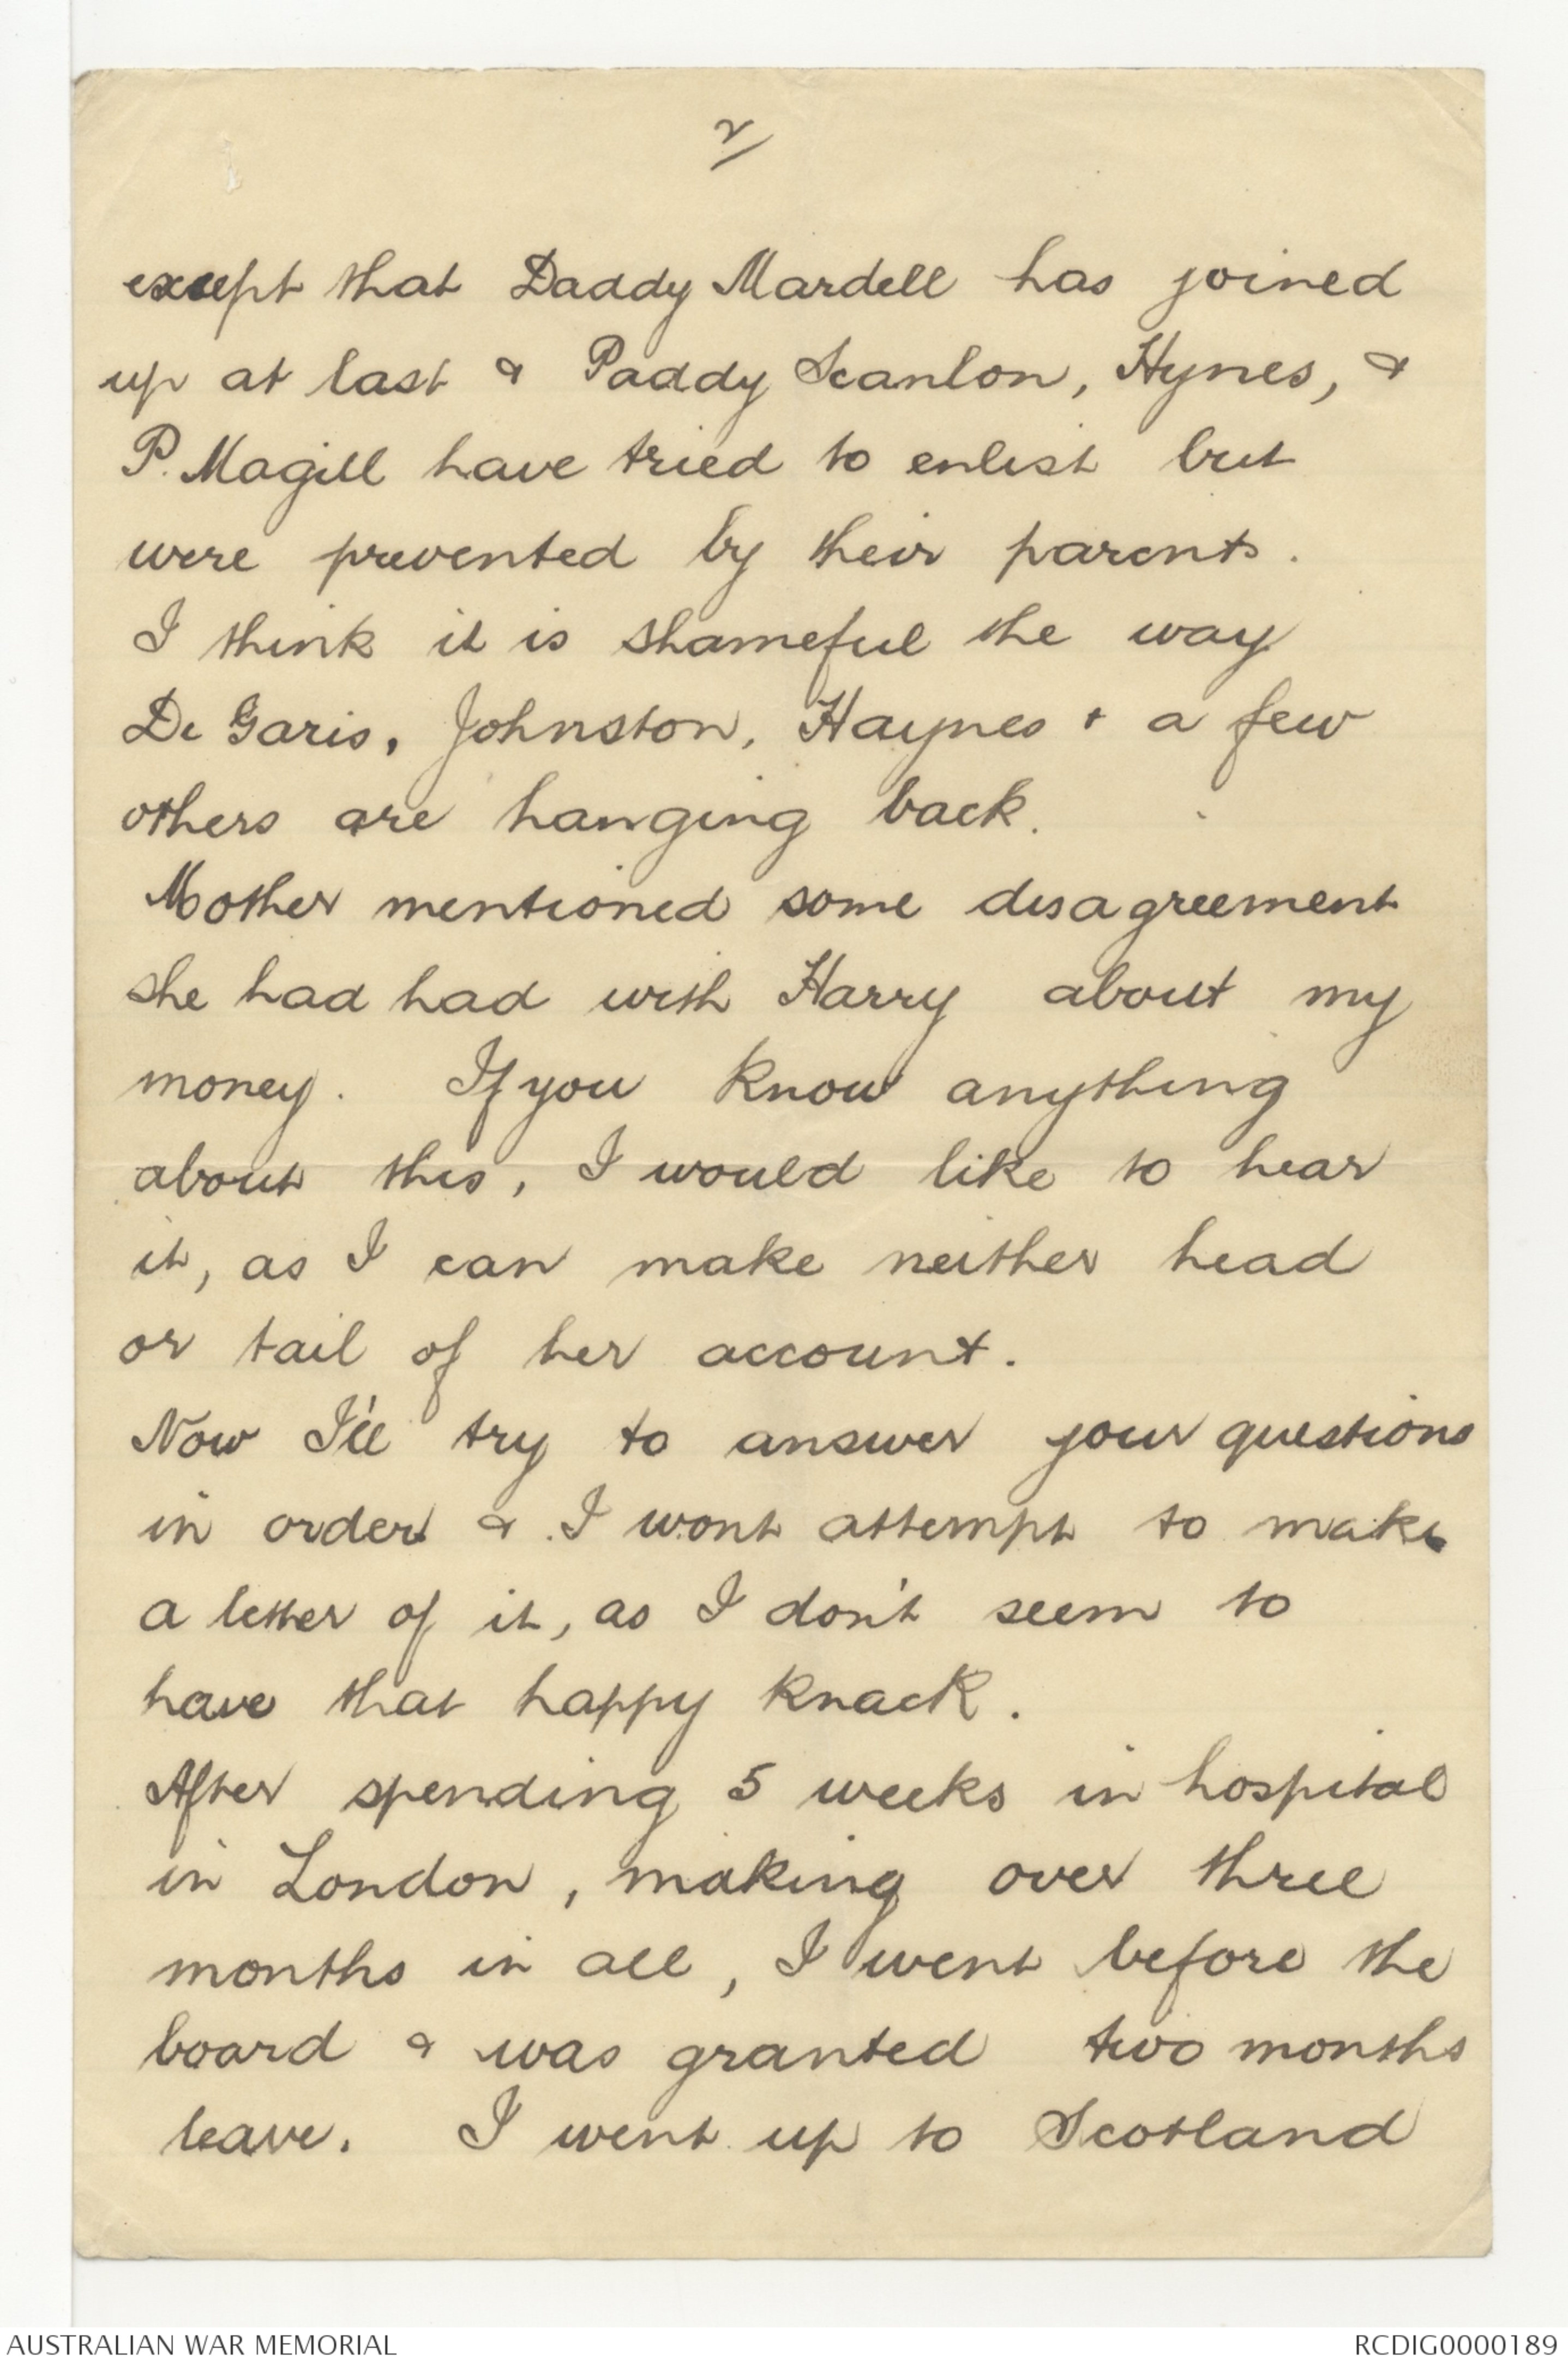 2/
except that Daddy Mardell has joined
up at last & Paddy Scanlon, Hynes, &
P. Magill have tried to enlist but
were prevented by their parents.
I think it is shameful the way
De Garis, Johnston, Haynes + a few
others are hanging back.
Mother mentioned some disagreement
she had had with Harry about my
money. If you know anything
about this, I would like to hear
it, as I can make neither head
or tail of her account.
Now I'll try to answer your questions
in order & I wont attempt to make
a letter of it, as I don't seem to
have that happy knack.
After spending 5 weeks in hospital
in London, making over three
months in all, I went before the
board & was granted two months
leave. I went up to Scotland
AUSTRALIAN WAR MEMORIAL
RCDIG0000189